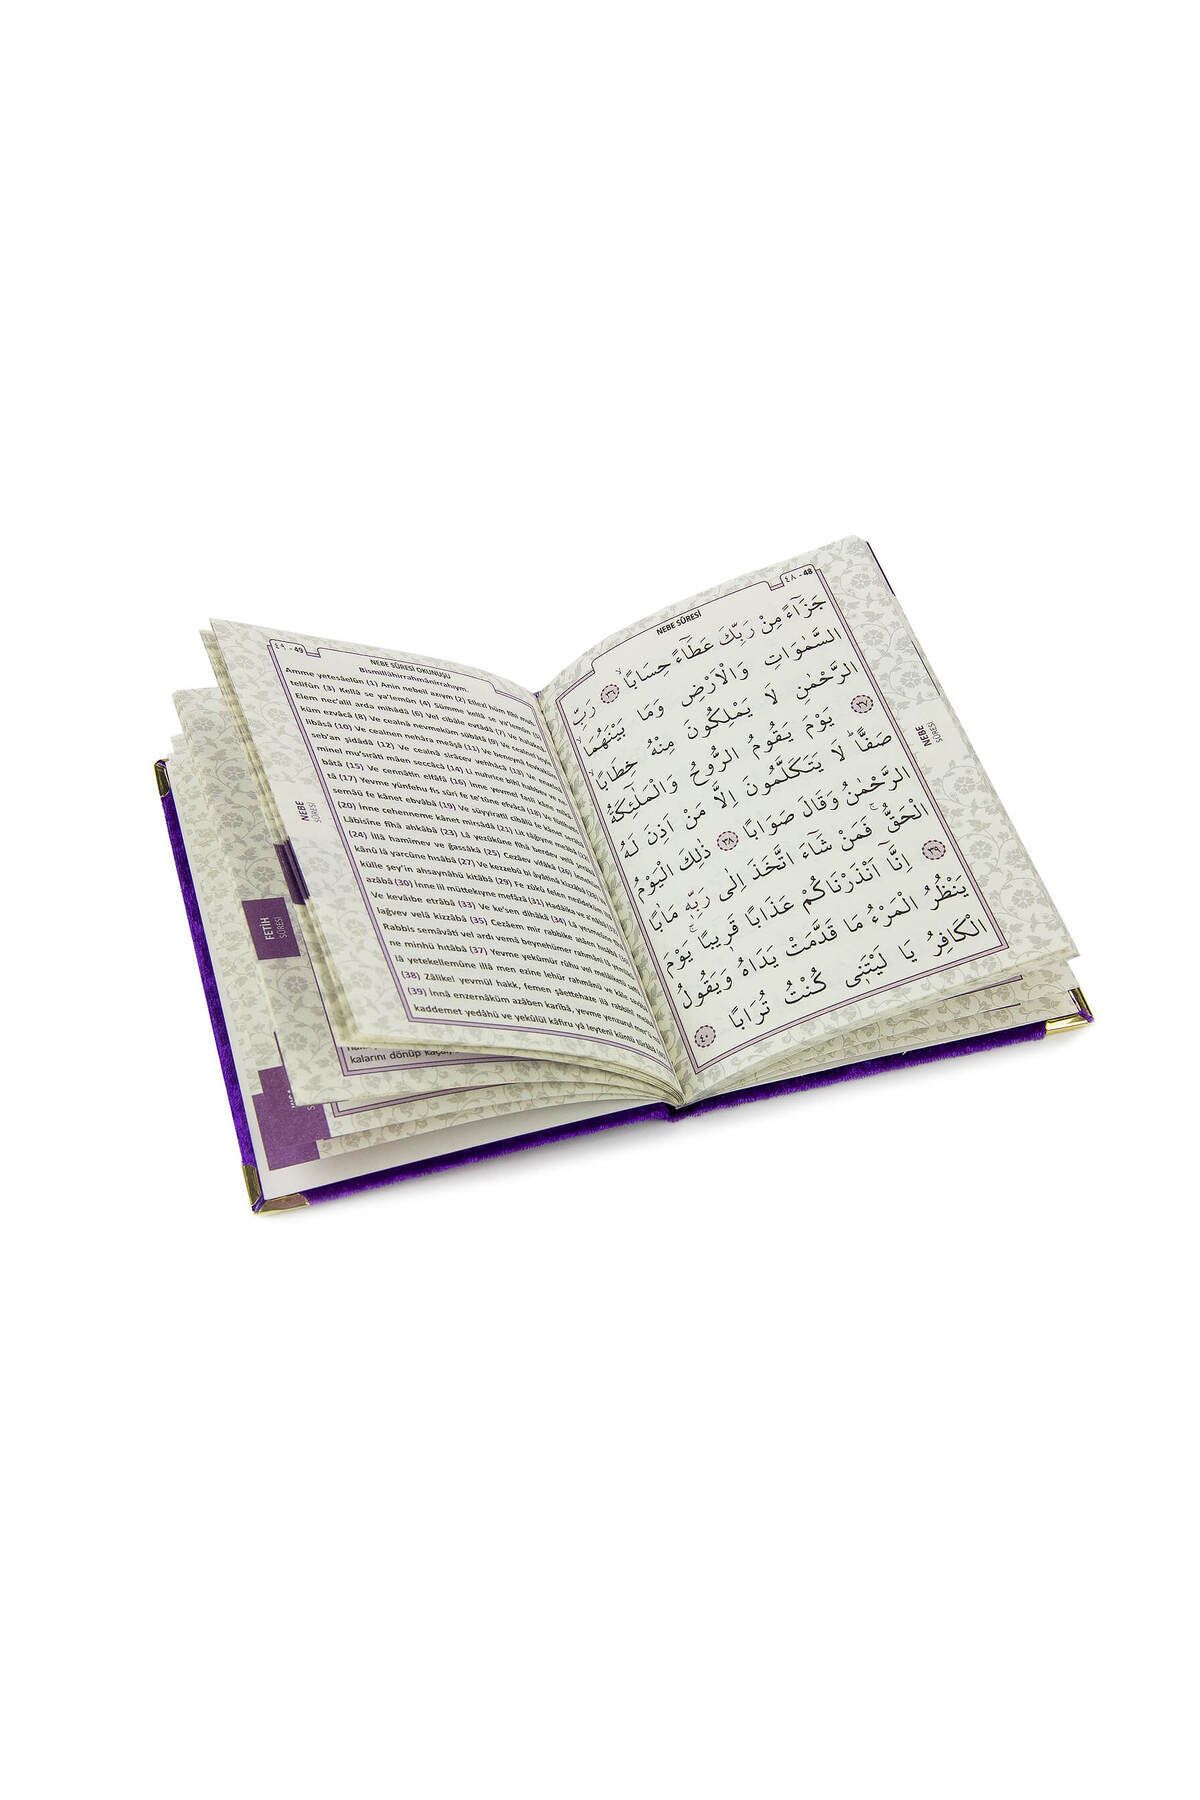 ٤٨ - 48
NEBE SÛRESİ
جَزَٓاءً مِنْ رَبِّكَ عَطَٓاءً حِسَابًاۙ ٣٦ رَبِّ
السَّمٰوَاتِ وَالْاَرْضِ وَمَا بَيْنَهُمَا
الرَّحْمٰنِ لَا يَمْلِكُونَ مِنْهُ خِطَابًاۚ
٣٧ يَوْمَ يَقُومُ الرُّوحُ وَالْمَلٰٓئِكَةُ
صَفًّاۜ لَا يَتَكَلَّمُونَ اِلَّا مَنْ اَذِنَ لَهُ
الرَّحْمٰنُ وَقَالَ صَوَابًا ٣٨ ذٰلِكَ الْيَوْمُ
الْحَقُّۚ فَمَنْ شَٓاءَ اتَّخَذَ اِلٰى رَبِّهٖ مَاٰبًا
٣٩ اِنَّٓا اَنْذَرْنَاكُمْ عَذَابًا قَرٖيبًاۚ يَوْمَ
يَنْظُرُ الْمَرْءُ مَا قَدَّمَتْ يَدَاهُ وَيَقُولُ
الْكَافِرُ يَا لَيْتَنٖي كُنْتُ تُرَابًا ٤٠
NEBE
SÛRESİ
٤٩ - 49
NEBE SÛRESİ OKUNUŞU
Bismillâhirrahmânirrahıym.
Amme yetesâelûn (1) Anin nebeil azıym (2) Ellezî hüm fîhi
telifûn (3) Kellâ se ya'lemûn (4) Sümme kellâ se ya'lemûn
Elem nec'alil arda mihâdâ (6) Vel cibâle evtâdâ (7) Ve
küm ezvâcâ (8) Ve cealnâ nevmeküm sübâtâ (9) Ve cealnel
libâsâ (10) Ve cealnen nehâra meâşâ (11) Ve beneynâ
seb'an şidâdâ (12) Ve cealnâ sirâcev vehhâcâ (13) Ve enzelnâ
minel mu'sırâti mâen seccâcâ (14) Li nuhrice bihî habbev ve
bâtâ (15) Ve cennâtin elfâfâ (16) İnne yevmel fasli kâne
tâ (17) Yevme yünfehu fis sûri fe te'tûne efvâcâ (18)
semâü fe kânet ebvâbâ (19) Ve süyyiratil cibâlü fe kânet
(20) İnne cehenneme kânet mirsâdâ (21) Lit tâğıyne
Lâbisîne fîhâ ahkâbâ (23) Lâ yezûkûne fîhâ berdev velâ
(24) İllâ hamîmev ve ğassâkâ (25) Cezâev vifâkâ (26)
kânû lâ yarcûne hısâbâ (27) Ve kezzebû bi âyâtinâ kizzâbâ
külle şey'in ahsaynâhü kitâbâ (29) Fe zûkû felen nezîdeküm
azâbâ (30) İnne lil müttekıyne mefâzâ (31) Hadâika ve
Ve kevâıbe etrâbâ (33) Ve ke'sen dihâkâ (34) Lâ
lağvev velâ kizzâbâ (35) Cezâem mir rabbike atâen
Rabbis semâvâti vel ardı vemâ beynehümer rahmâni lâ
ne minhü hıtâbâ (37) Yevme yekûmür rûhu vel
lâ yetekellemûne illâ men ezine lehür rahmânü ve kâle
(38) Zâlikel yevmül hakk, femen şâettehaze ilâ rabbihî
(39) İnnâ enzernâküm azâben karîbâ, yevme yenzurul
kaddemet yedâhü ve yekûlül kâfiru yâ leytenî küntü türâbâ
NEBE
SÛRESİ
FETİH
SÛRESİ
kalarını dönüp